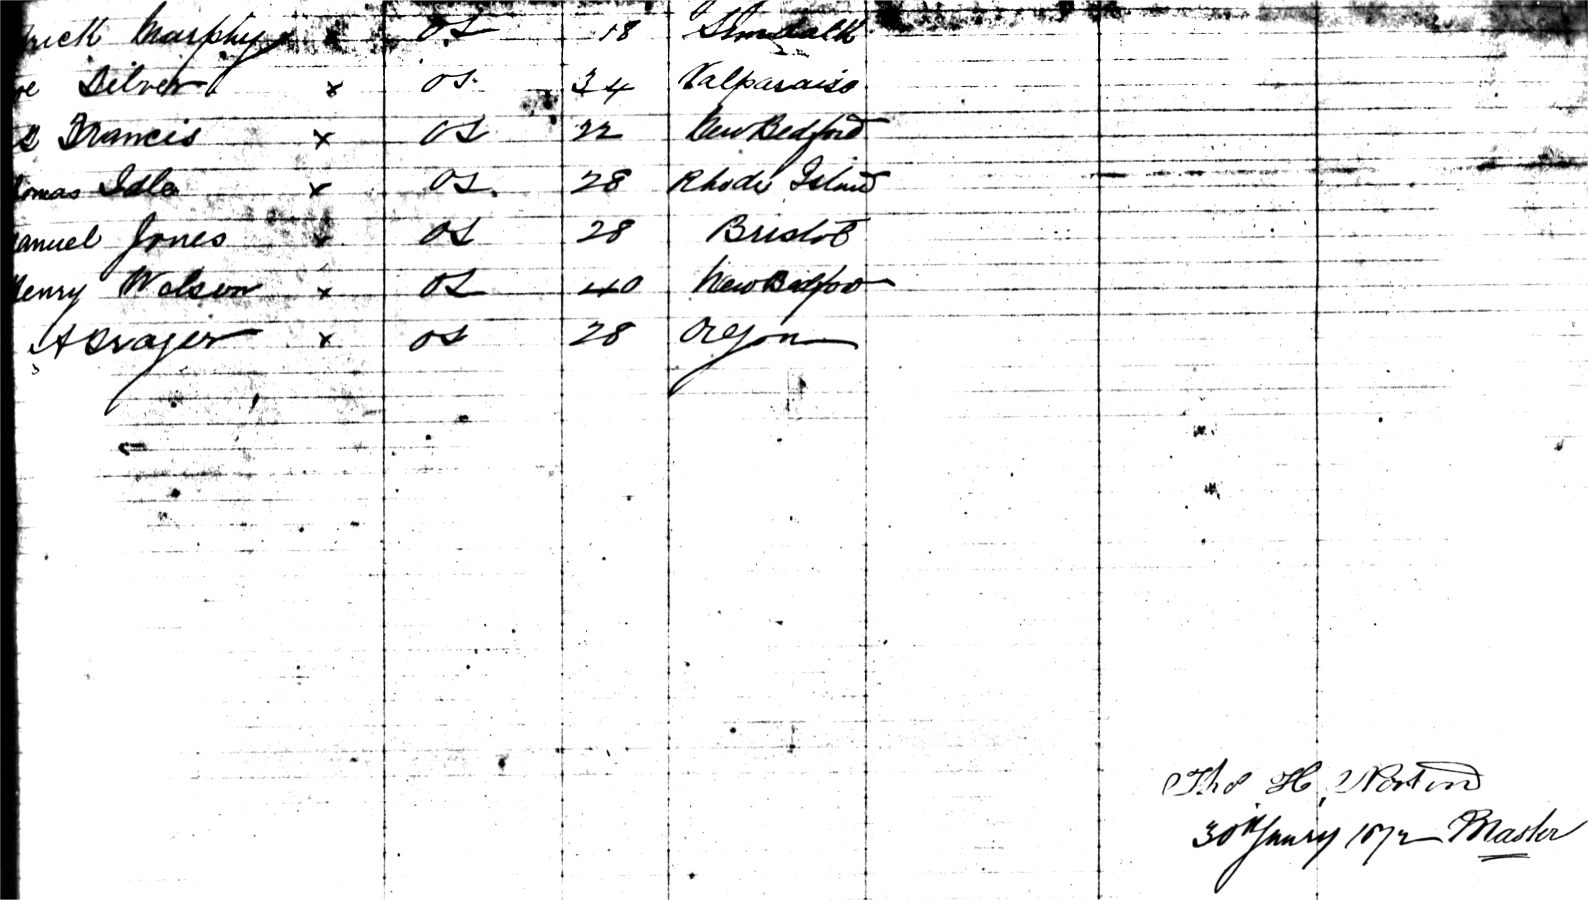 Murphy x OS 18
Silver x OS 34 Valparaiso
Francis x OS 22 New Bedford
omas Idle x OS 28 Rhode Island
anuel Jones x OS 28 Bristol
Henry Wolson x OS 40 New Bedford
A Srajer x OS 28 Oregon
Thos H. Norton
30th Janry 1872 Master